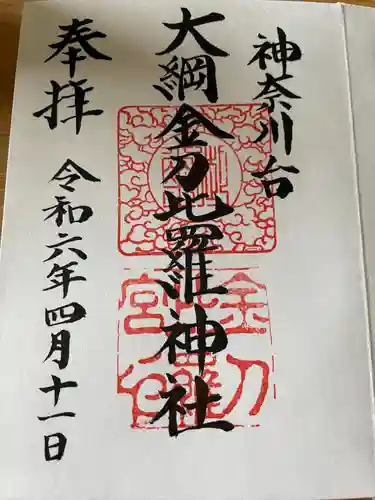 神奈川台
大綱金刀比羅神社
奉拝
令和六年四月十一日